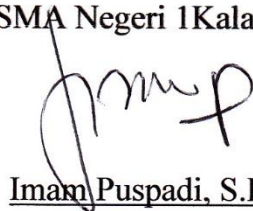 SMA Negeri 1Kala
Imam Puspadi, S.